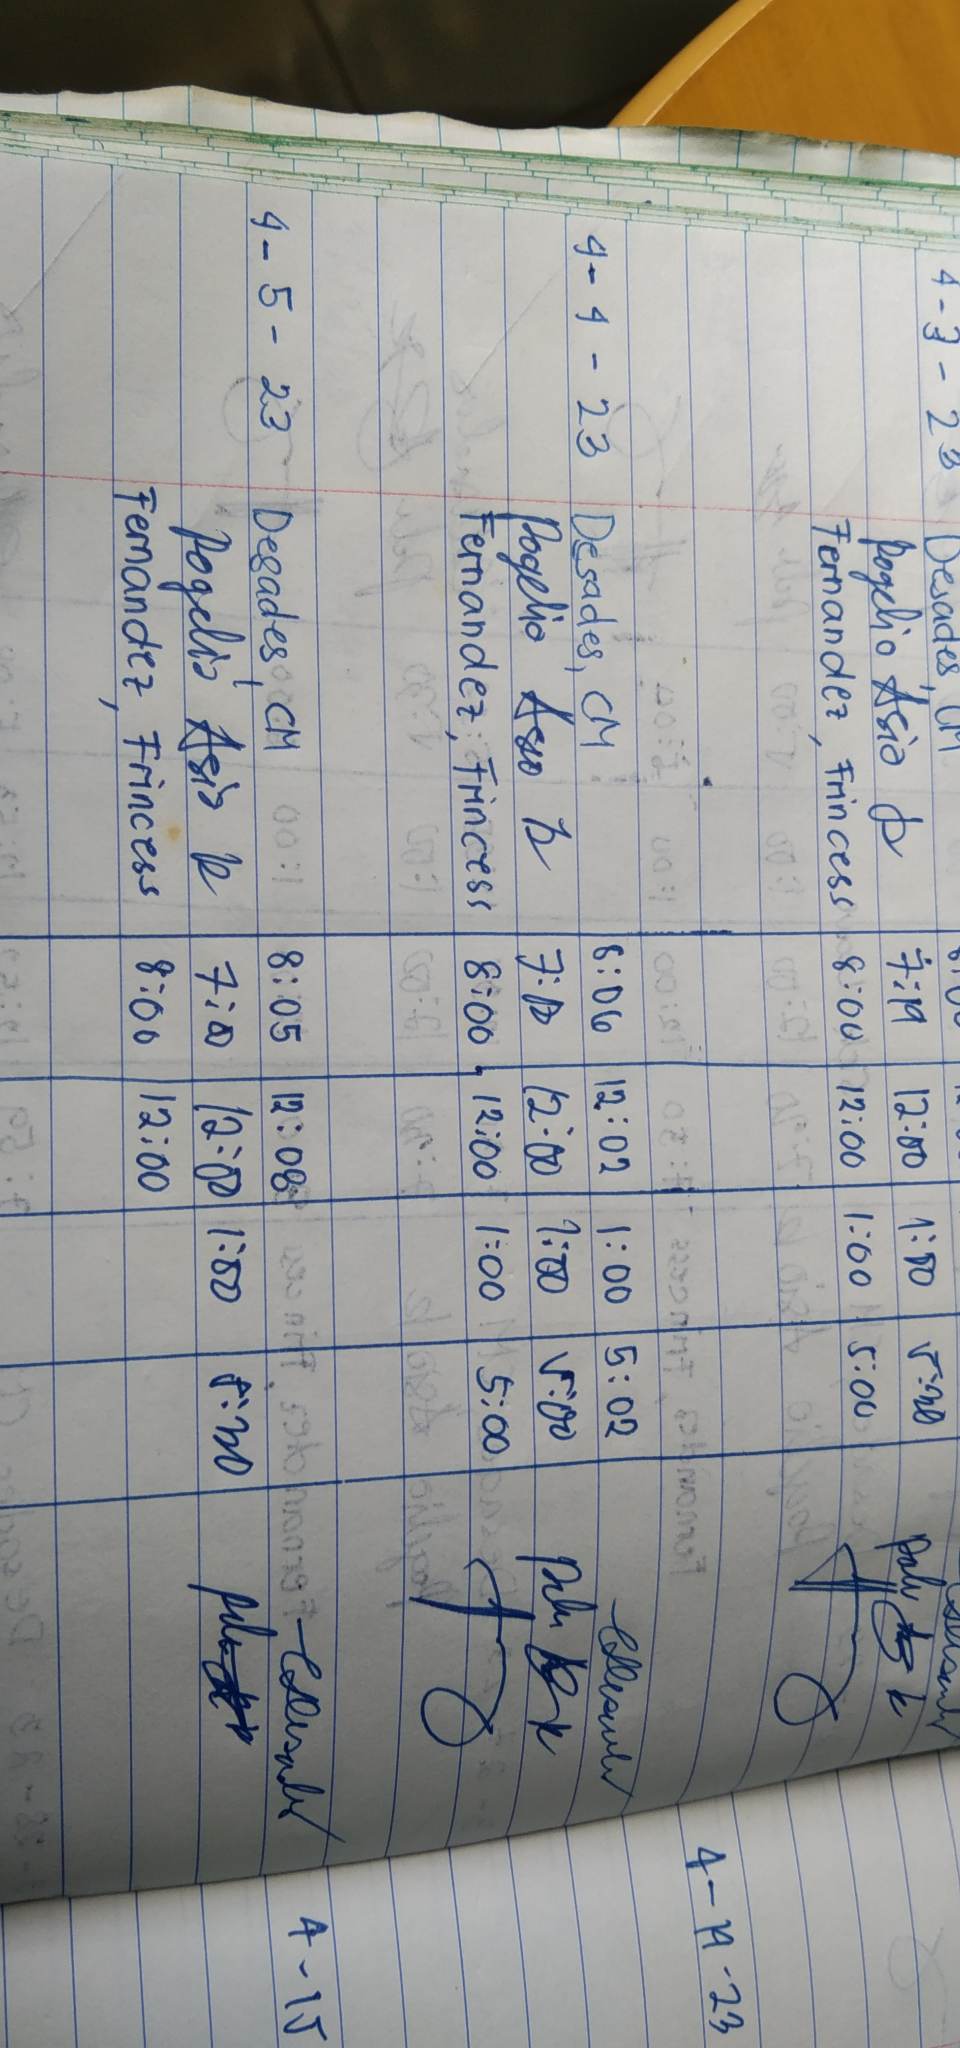 4-3-23 Desades, CM
Rogelio Asio Jr 7:19 12:00 1:00 5:30
Fernandez, Frincess 8:00 12:00 1:00 5:00
4-4-23 Desades, CM 8:06 12:02 1:00 5:02
Rogelio Asio Jr 7:10 12:00 1:00 5:00
Fernandez, Frincess 8:00 12:00 1:00 5:00
4-5-23 Desades, CM 8:05 12:08
Rogelio Asio Jr 7:10 12:00 1:00 5:30
Fernandez, Frincess 8:00 12:00
4-14-23
4-15